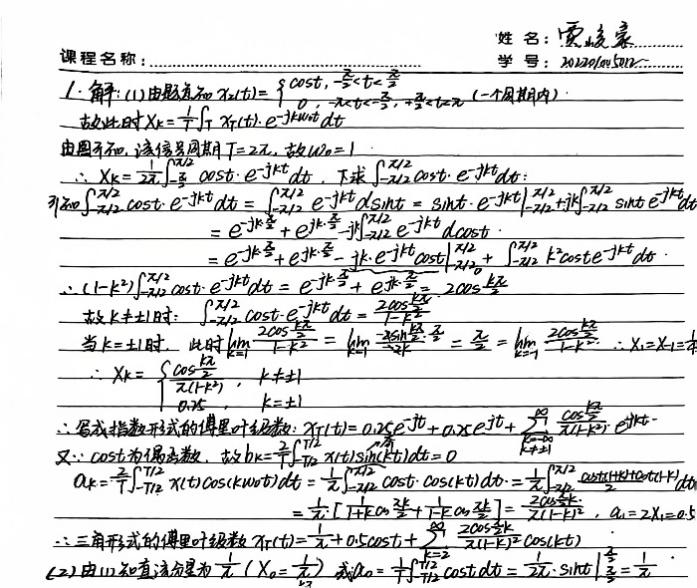 姓 名：
课程名称：
学 号：
1. 解：(1) 由题意知 x₂(t) = { cost, -π/2<t<π/2
0, -π<t<-π/2, +π/2<t<π (一个周期内)
故此时 Xₖ = 1/T ∫_T x_T(t)·e^{-jkω₀t} dt
由图可知, 该信号周期 T=2π, 故 ω₀=1
∴ Xₖ = 1/2π ∫_{-π/2}^{π/2} cost·e^{-jkt} dt, 下求 ∫_{-π/2}^{π/2} cost·e^{-jkt} dt:
可知 ∫_{-π/2}^{π/2} cost·e^{-jkt} dt = ∫_{-π/2}^{π/2} e^{-jkt} dsint = sint·e^{-jkt}|_{-π/2}^{π/2} + jk∫_{-π/2}^{π/2} sint e^{-jkt} dt
= e^{-jk·π/2} + e^{jk·π/2} - jk∫_{-π/2}^{π/2} e^{-jkt} dcost·
= e^{-jk·π/2} + e^{jk·π/2} - jk·e^{-jkt} cost|_{-π/2}^{π/2} + ∫_{-π/2}^{π/2} k²cost e^{-jkt} dt·
∴ (1-k²)∫_{-π/2}^{π/2} cost·e^{-jkt} dt = e^{-jk·π/2} + e^{jk·π/2} = 2cos kπ/2
故 k≠±1时: ∫_{-π/2}^{π/2} cost·e^{-jkt} dt = 2cos(kπ/2)/(1-k²)
当 k=±1时, 此时 lim_{k→1} 2cos(kπ/2)/(1-k²) = lim_{k→1} -2sin(kπ/2)·π/2/(-2k) = π/2 = lim_{k→-1} 2cos(kπ/2)/(1-k²) ∴ X₁=X₋₁=
∴ Xₖ = { cos(kπ/2)/π(1-k²), k≠±1
0.25, k=±1
∴ 写成指数形式的傅里叶级数: x_T(t) = 0.25e^{-jt} + 0.25e^{jt} + Σ_{k=-∞, k≠±1}^{∞} cos(kπ/2)/π(1-k²) · e^{jkt}
又∵ cost为偶函数, 故 bₖ = 2/T ∫_{-T/2}^{T/2} x(t) sin(kt) dt = 0
aₖ = 2/T ∫_{-T/2}^{T/2} x(t)cos(kω₀t) dt = 1/π ∫_{-π/2}^{π/2} cost·cos(kt) dt = 1/π ∫_{-π/2}^{π/2} cost(1+k)+cost(1-k)/2 dt
= 1/π·[1/1+k cos πk/2 + 1/1-k cos πk/2] = 2cos(π/2 k)/π(1-k)², a₁=2X₁=0.5
∴ 三角形式的傅里叶级数 x_T(t) = 1/π + 0.5cost + Σ_{k=2}^{∞} 2cos(π/2 k)/π(1-k)² cos(kt)
(2) 由(1)知直流分量为 1/π (X₀=1/π) 或 a₀ = 1/T ∫_{-T/2}^{T/2} cost dt = 1/2π·sint|_{-π/2}^{π/2} = 1/π